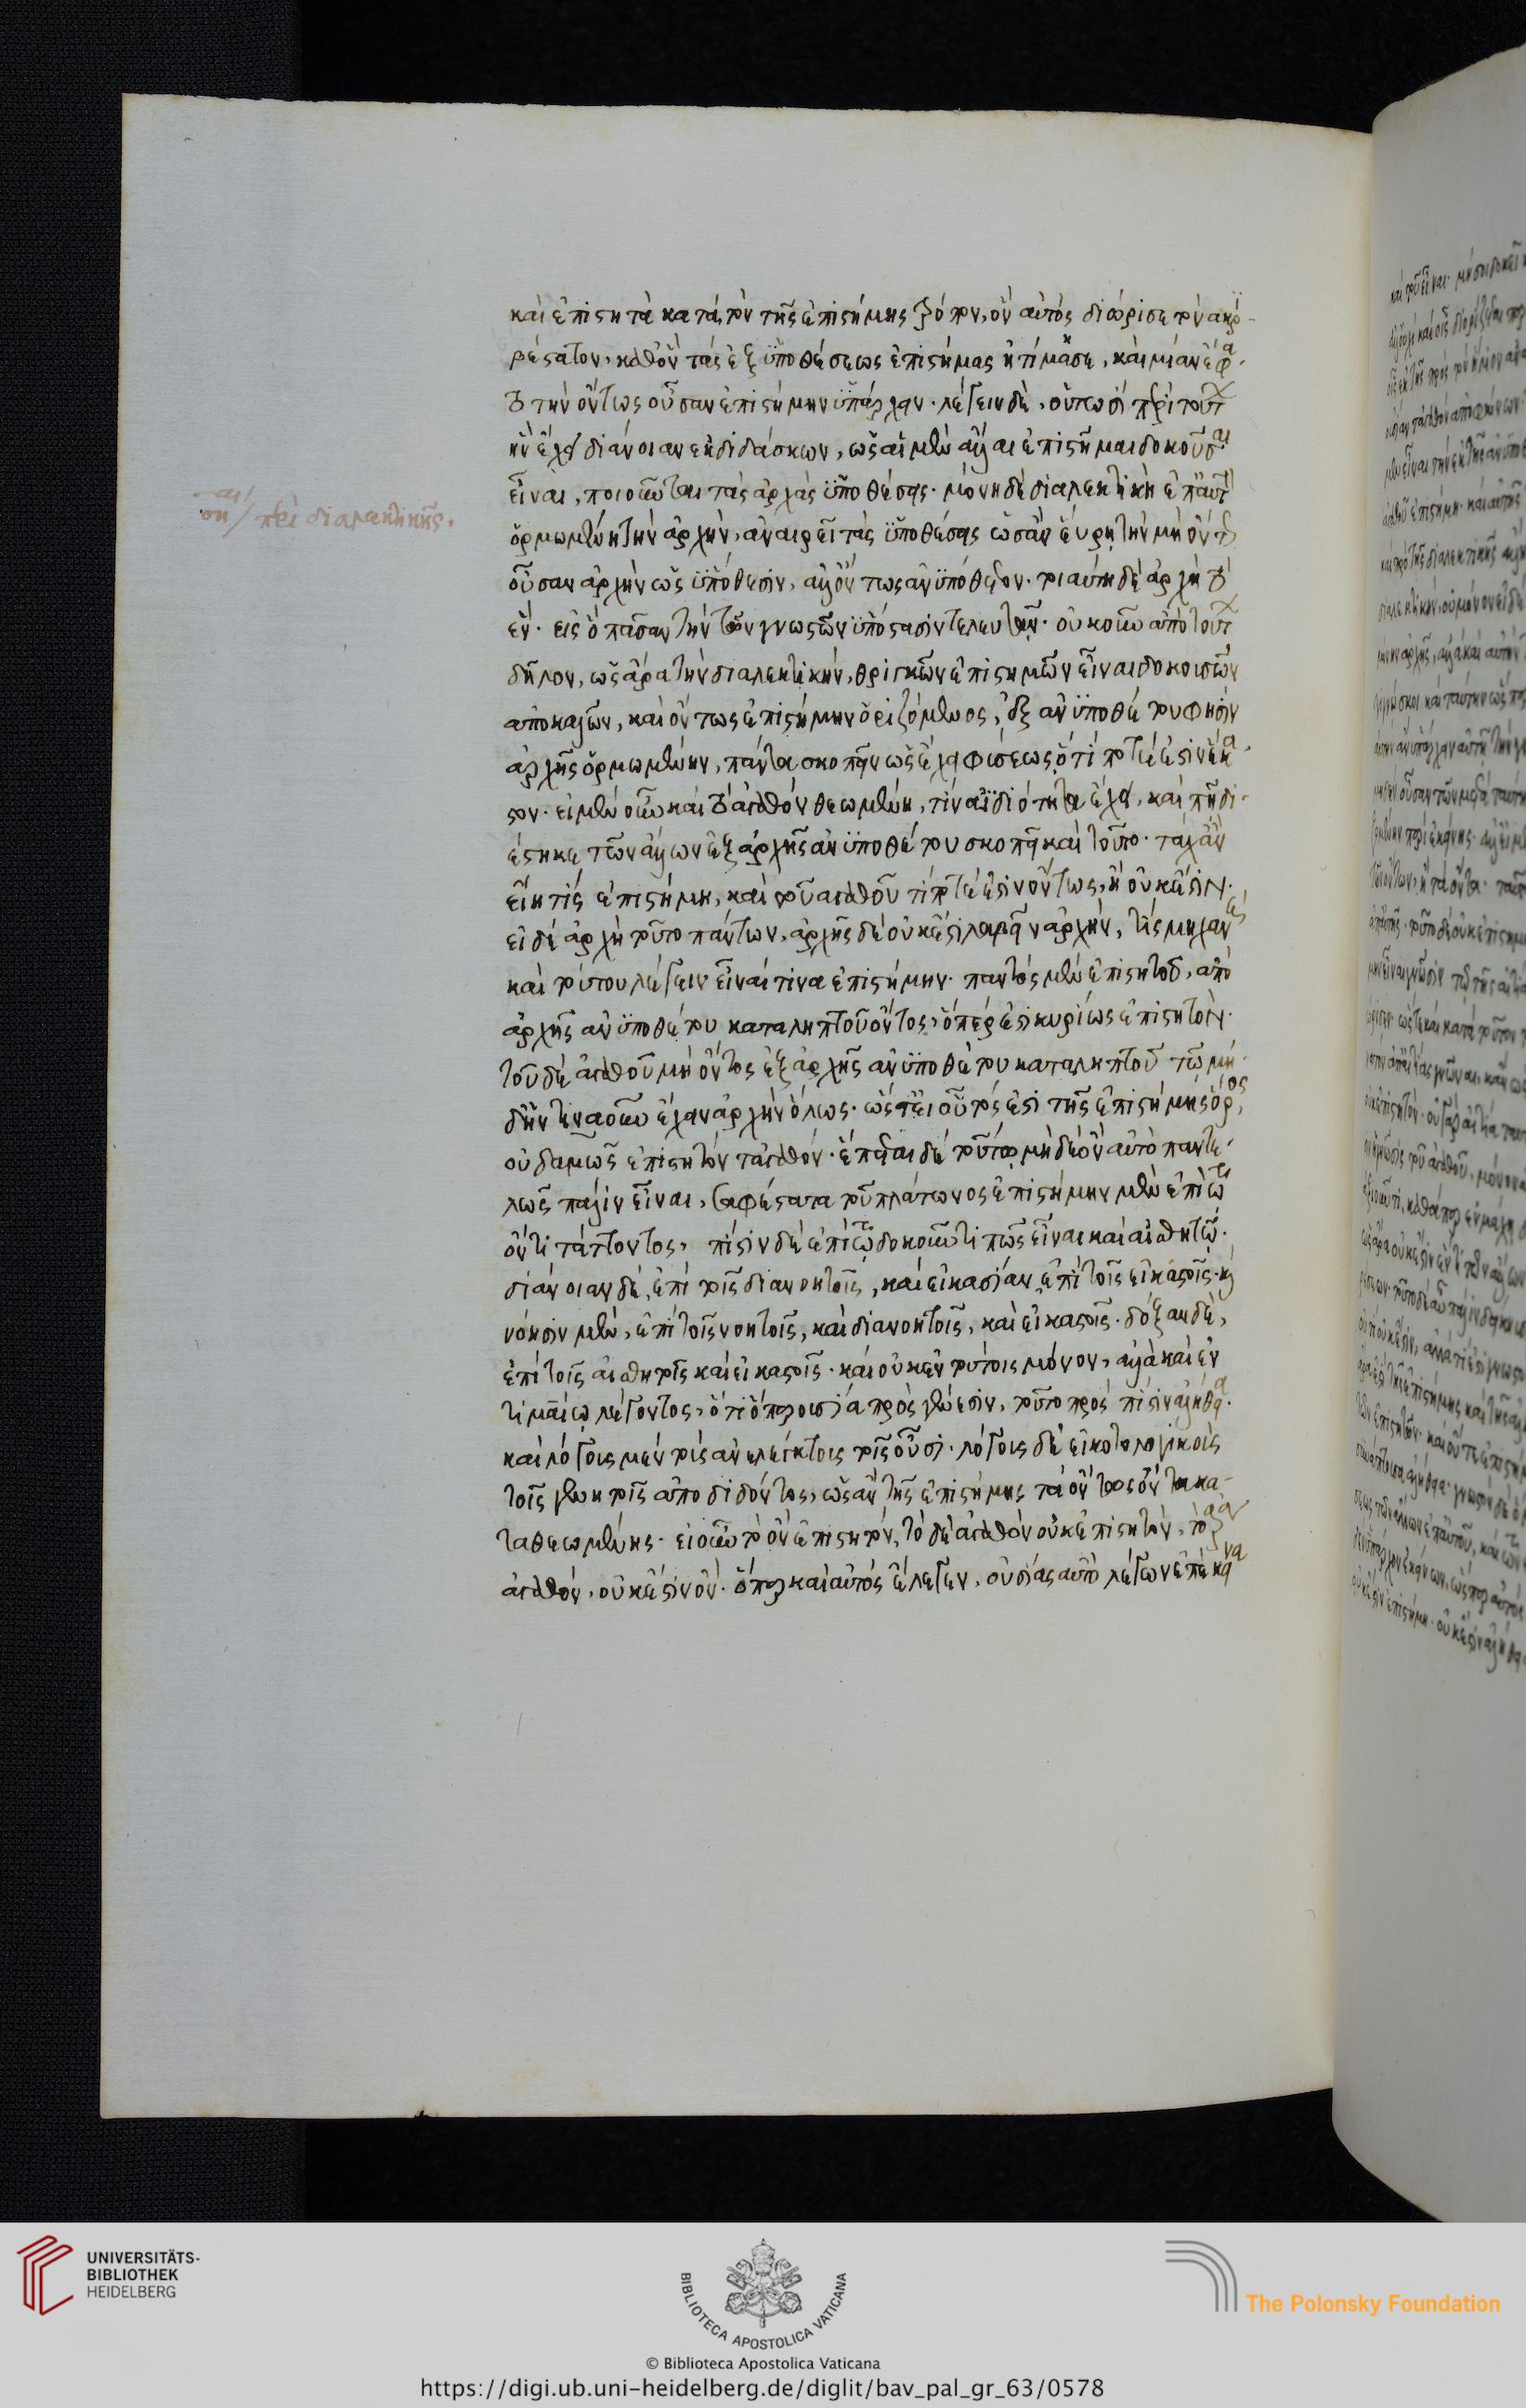 καὶ ἐπιστητὰ κατὰ τὸν τῆς ἐπιστήμης τρόπον, ὃν αὐτὸς διώρισε τὸν ἀκρι
βέστατον, καθ' ὃν τὰς ἐξ ὑποθέσεως ἐπιστήμας ἠτίμασε, καὶ μίαν ἔφα
τὸ τὴν ὄντως οὖσαν ἐπιστήμην ὑπάρχειν. λέγειν δὲ, οὑτωσὶ περὶ τούτων
ἣν ἔχει διάνοιαν ἐκδιδάσκων, ὡς αἱ μὲν ἄλλαι ἐπιστῆμαι δοκοῦσαι
εἶναι, ποιοῦνται τὰς ἀρχὰς ὑποθέσεις. μόνη δὲ διαλεκτικὴ ἐπ' αὐτὴν
ὁρμωμένη τὴν ἀρχὴν, ἀναιρεῖ τὰς ὑποθέσεις ὡς ἂν εὕρῃ τὴν μὴ ὄντως
οὖσαν ἀρχὴν ὡς ὑπόθεσιν, ἀλλ' ὄντως ἀνυπόθετον. τοιαύτη δὲ ἀρχὴ τὸ
ἕν. εἰς ὃ πᾶσαν τὴν τῶν γνωστῶν ὑπόστασιν τελευτᾶν. οὐκοῦν ἀπὸ τούτων
δῆλον, ὡς ἄρα τὴν διαλεκτικὴν, θριγκὸν ἐπιστημῶν εἶναι δοκουσῶν
ἀποκαλῶν, καὶ ὄντως ἐπιστήμην ὁριζόμενος, ἐξ ἀνυποθέτου φησὶν
ἀρχῆς ὁρμωμένην, πάντα σκοπεῖν ὡς ἔχει φύσεως, ὅτί ποτέ ἐστιν ἕκα
στον. εἰ μὲν οὖν καὶ τὸ ἀγαθὸν θεωμένη, τίνα ἰδιότητα ἔχει, καὶ πῇ δι
έστηκε τῶν ἄλλων ἐξ ἀρχῆς ἀνυποθέτου σκοπεῖ καὶ τοῦτο. τάχ' ἂν
εἴη τίς ἐπιστήμη, καὶ τοῦ ἀγαθοῦ τί ποτέ ἐστιν ὄντως, ἢ οὐκ ἔστιν.
εἰ δὲ ἀρχὴ τοῦτο πάντων, ἀρχῆς δὲ οὐκ ἔστι λαβεῖν ἀρχὴν, τίς μηχανὴ
καὶ τούτου λέγειν εἶναί τινα ἐπιστήμην. παντὸς μὲν ἐπιστητοῦ, ἀπὸ
ἀρχῆς ἀνυποθέτου καταληπτοῦ ὄντος, ὅπερ ἐστὶ κυρίως ἐπιστητόν.
τοῦ δὲ ἀγαθοῦ μὴ ὄντος ἐξ ἀρχῆς ἀνυποθέτου καταληπτοῦ τῷ μη
δ' ἥντινα οὖν ἔχειν ἀρχὴν ὅλως. ὥστε εἰ οὗτός ἐστι τῆς ἐπιστήμης ὅρος,
οὐδαμῶς ἐπιστητὸν τἀγαθόν. ἕπεται δὲ τούτῳ μὴ δὲ ὂν αὐτὸ παντε
λῶς πάλιν εἶναι, σαφέστατα τοῦ πλάτωνος ἐπιστήμην μὲν ἐπὶ τῷ
ὄντι τάττοντος, πίστιν δὲ ἐπὶ τῷ δοκοῦντι πῶς εἶναι καὶ αἰσθητῷ.
διάνοιαν δὲ, ἐπὶ τοῖς διανοητοῖς, καὶ εἰκασίαν, ἐπὶ τοῖς εἰκαστοῖς. καὶ
νόησιν μὲν, ἐπὶ τοῖς νοητοῖς, καὶ διανοητοῖς, καὶ εἰκαστοῖς. δόξαν δὲ,
ἐπὶ τοῖς αἰσθητοῖς καὶ εἰκαστοῖς. καὶ οὐκ ἐν τούτοις μόνον, ἀλλὰ καὶ ἐν
τιμαίῳ λέγοντος, ὅτι ὅπερ οὐσία πρὸς γένεσιν, τοῦτο πρὸς πίστιν ἀλήθεια.
καὶ λόγοις μὲν τοῖς ἀνελέγκτοις τοῖς οὖσι. λόγοις δὲ εἰκοτολογικοῖς
τοῖς γενητοῖς ἀποδιδόντος, ὡς ἂν τῆς ἐπιστήμης τὰ ὄντως ὄντα κα
ταθεωμένης. εἰ οὖν τὸ ὂν ἐπιστητὸν, τὸ δὲ ἀγαθὸν οὐκ ἐπιστητὸν, τὸ ἄρα
ἀγαθὸν, οὐκ ἔστιν ὄν. ὅπερ καὶ αὐτὸς ἔλεγεν, οὐσίας αὐτὸ λέγων ἐπέκεινα
περὶ διαλεκτικῆς.
UNIVERSITÄTS-
BIBLIOTHEK
HEIDELBERG
BIBLIOTECA APOSTOLICA VATICANA
The Polonsky Foundation
© Biblioteca Apostolica Vaticana
https://digi.ub.uni-heidelberg.de/diglit/bav_pal_gr_63/0578